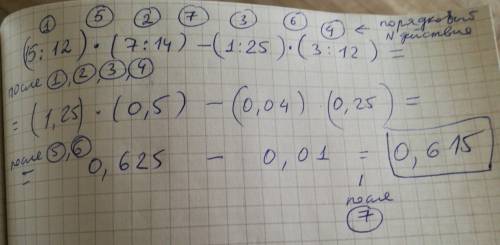 ① ⑤ ② ⑦ ③ ⑥ ④ ← порядковый
N действия
(5:12) · (7:14) – (1:25) · (3:12) =
после ①,②,③,④
= (1,25) · (0,5) – (0,04) (0,25) =
после ⑤,⑥
= 0,625 – 0,01 = 0,615
после
⑦